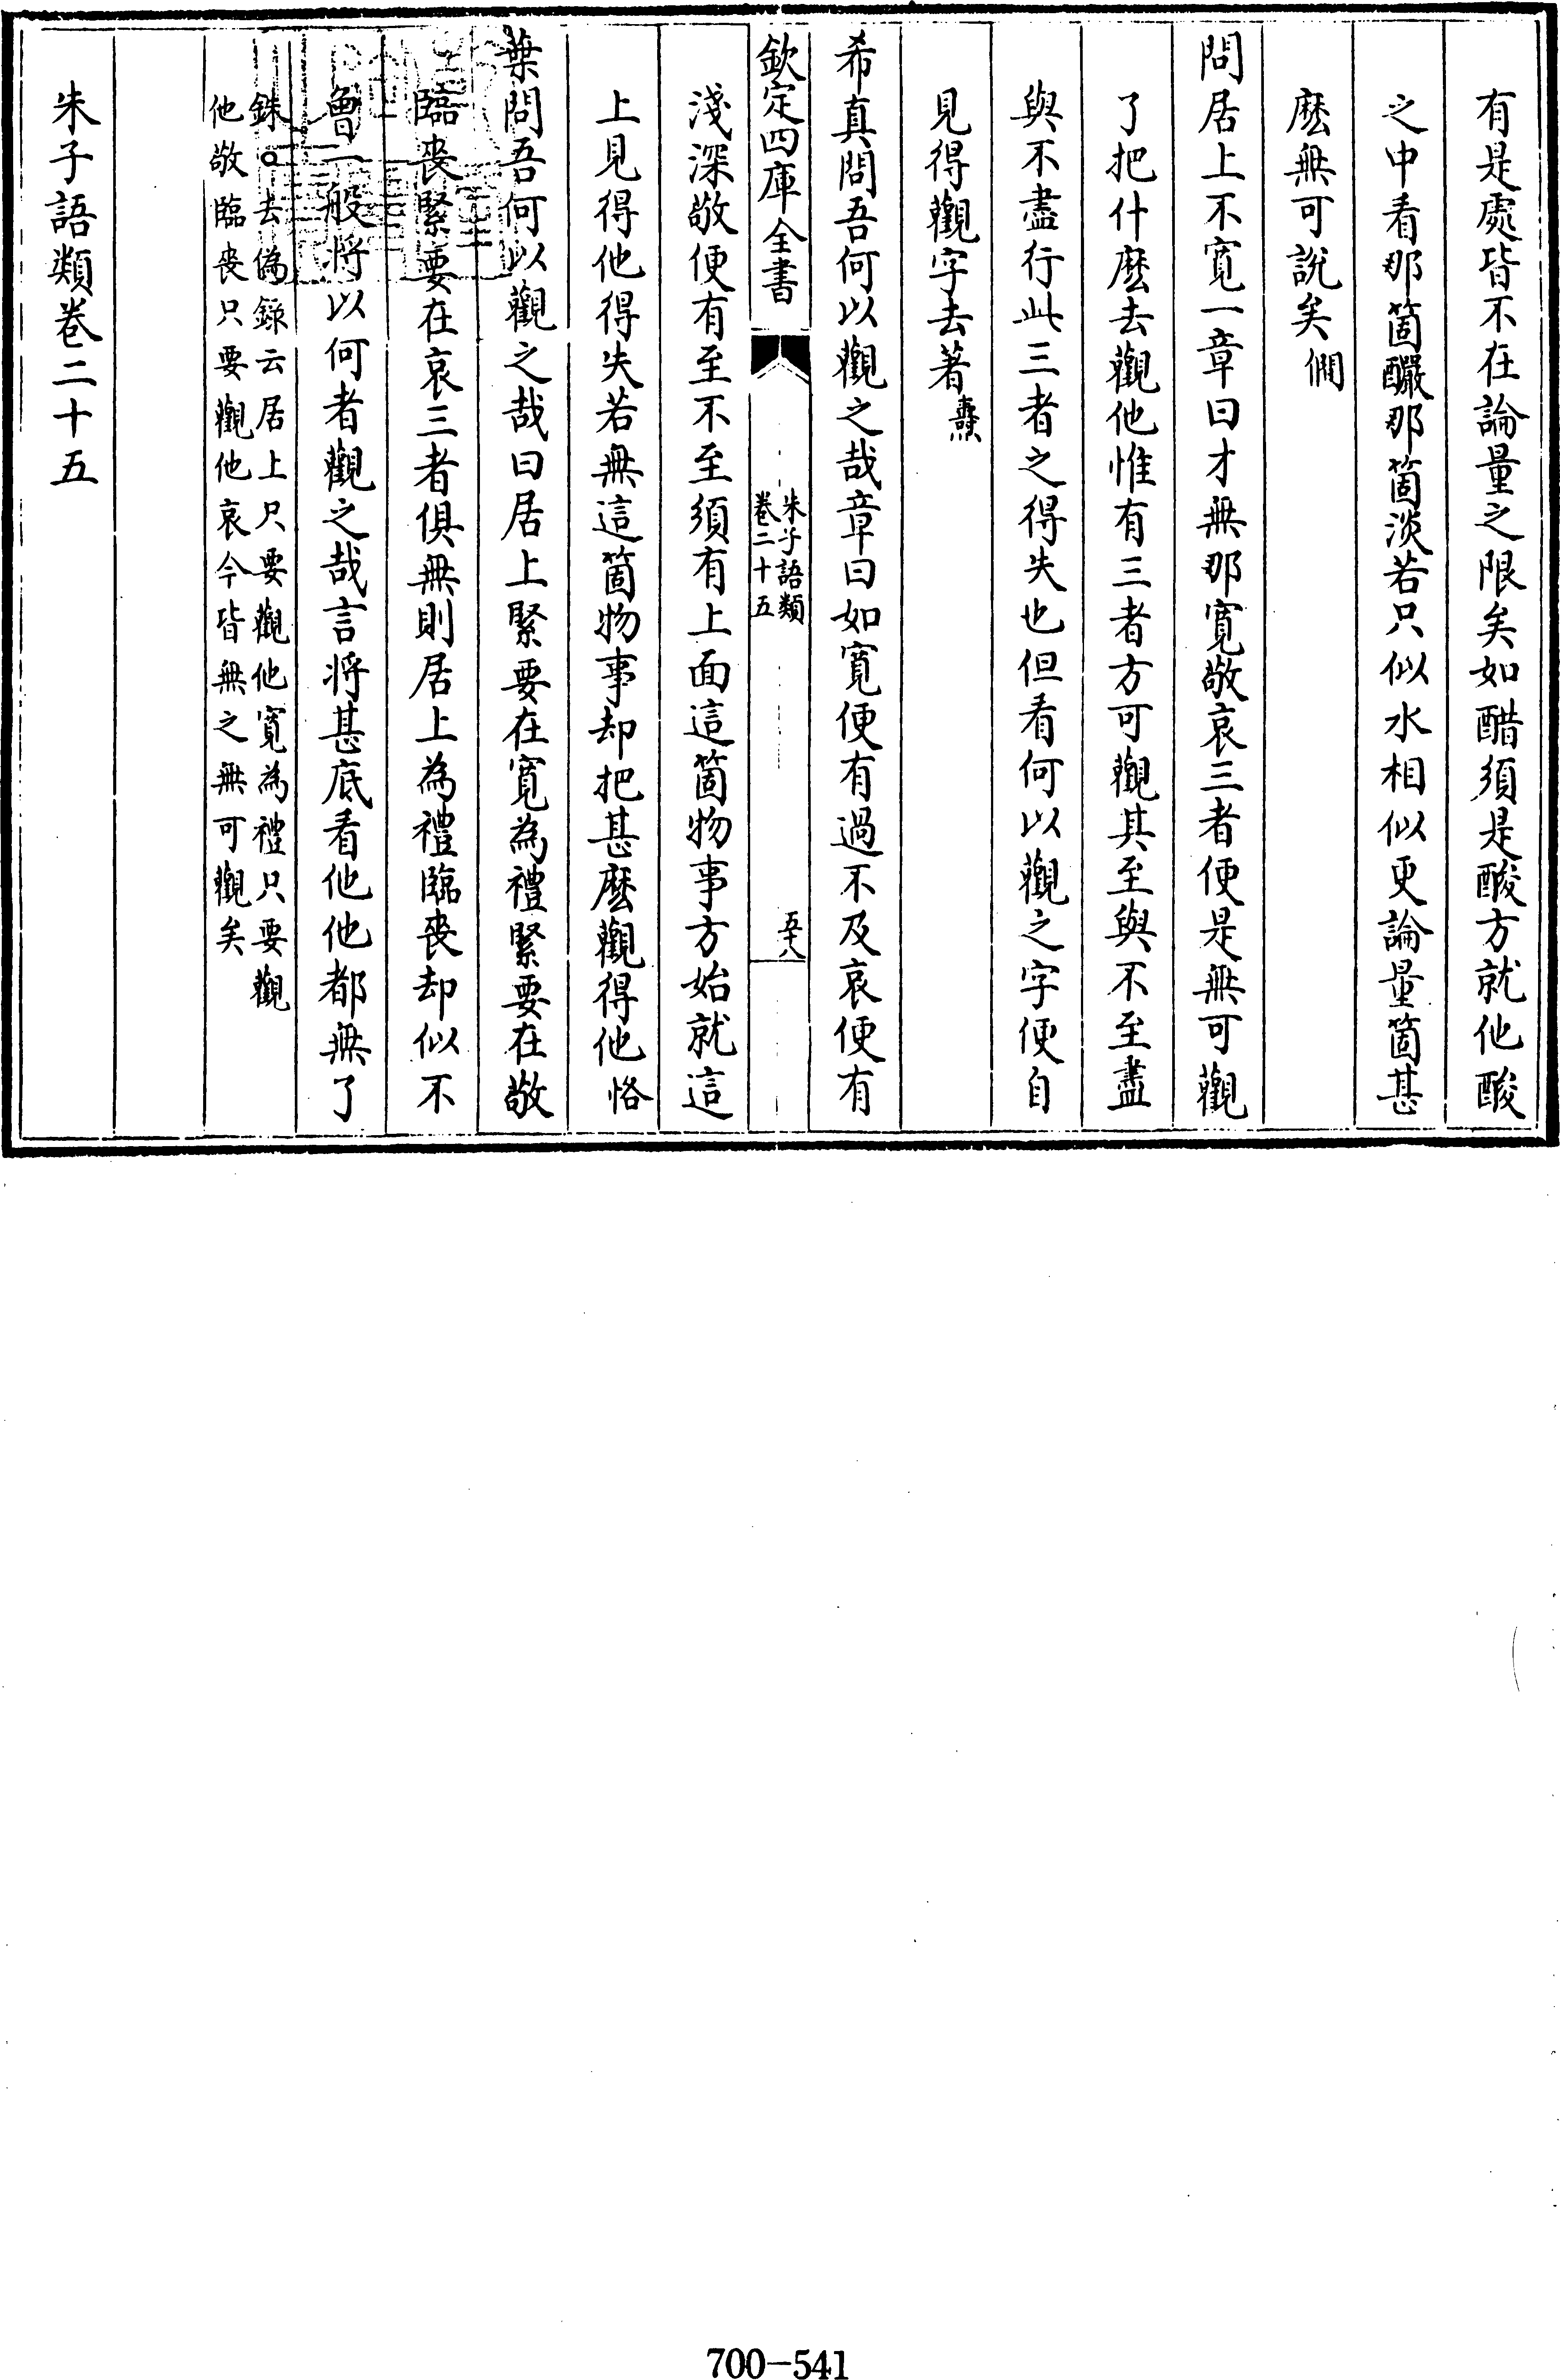 有是處皆不在論量之限矣如醋須是酸方就他酸
之中看那箇釅那箇淡若只似水相似更論量箇甚
麽無可說矣僩
問居上不寛一章曰才無那寛敬哀三者便是無可觀
了把什麽去觀他惟有三者方可觀其至與不至盡
與不盡行此三者之得失也但看何以觀之字便自
見得觀字去著燾
希真問吾何以觀之哉章曰如寛便有過不及哀便有
欽定四庫全書
朱子語類
卷二十五
五十八
淺深敬便有至不至須有上面這箇物事方始就這
上見得他得失若無這箇物事却把甚麽觀得他恪
葉問吾何以觀之哉曰居上緊要在寛為禮緊要在敬
臨喪緊要在哀三者俱無則居上為禮臨喪却似不
曾一般將以何者觀之哉言將甚底看他他都無了
銖○去偽録云居上只要觀他寛為禮只要觀
他敬臨喪只要觀他哀今皆無之無可觀矣
朱子語類卷二十五
700-541